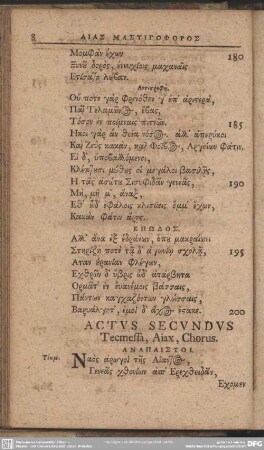 8 ΑΙΑΣ ΜΑΣΤΙΓΟΦΟΡΟΣ
Μομφὰν ἔχων 180
Ξυνοῦ δορὸς, ἐννυχίοις μαχαναῖς
Ἐτίσατο λώβαν.
Ἀντιστροφή.
Οὔ ποτε γὰρ φρενόθεν γ' ἐπ' ἀριστερὰ,
Παῖ Τελαμῶνος, ἔβας,
Τόσσον ἐν ποίμναις πιτνῶν. 185
Ἥκοι γὰρ ἂν θεία νόσος. ἀλλ' ἀπερύκοι
Καὶ Ζεὺς κακὰν, καὶ Φοῖβος, Ἀργείων φάτιν.
Εἰ δ', ὑποβαλλόμενοι,
Κλέπτουσι μύθους οἱ μεγάλοι βασιλῆς,
Ἢ τᾶς ἀσώτου Σισυφιδᾶν γενεᾶς, 190
Μὴ, μή μ', ἄναξ,
Ἔθ' ὧδ' ἐφάλοις κλισίαις ὄμμ' ἔχων,
Κακὰν φάτιν ἄρῃς.
ΕΠΩΔΟΣ.
Ἀλλ' ἄνα ἐξ ἑδράνων, ὅπου μακραίωνι
Στηρίζῃ ποτὲ τᾷ δ' ἀγωνίῳ σχολᾷ, 195
Ἄταν οὐρανίαν φλέγων.
Ἐχθρῶν δ' ὕβρις ὧδ' ἀτάρβητα
Ὁρμᾶτ' ἐν εὐανέμοις βάσσαις,
Πάντων καγχαζόντων γλώσσαις,
Βαρυάλγητ', ἐμοὶ δ' ἄχος ἕστακε. 200
ACTVS SECVNDVS
Tecmessa, Aiax, Chorus.
ΑΝΑΠΑΙΣΤΟΙ.
Ναὸς ἀρωγοὶ τῆς Αἴαντος,
Γενεᾶς χθονίων ἀπ' Ἐρεχθειδᾶν,
Ἔχομεν